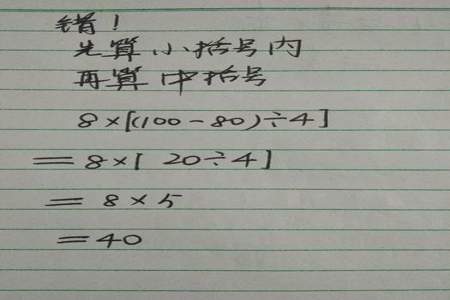 错！
先算小括号内
再算中括号
8×[(100-80)÷4]
=8×[ 20÷4]
=8×5
=40